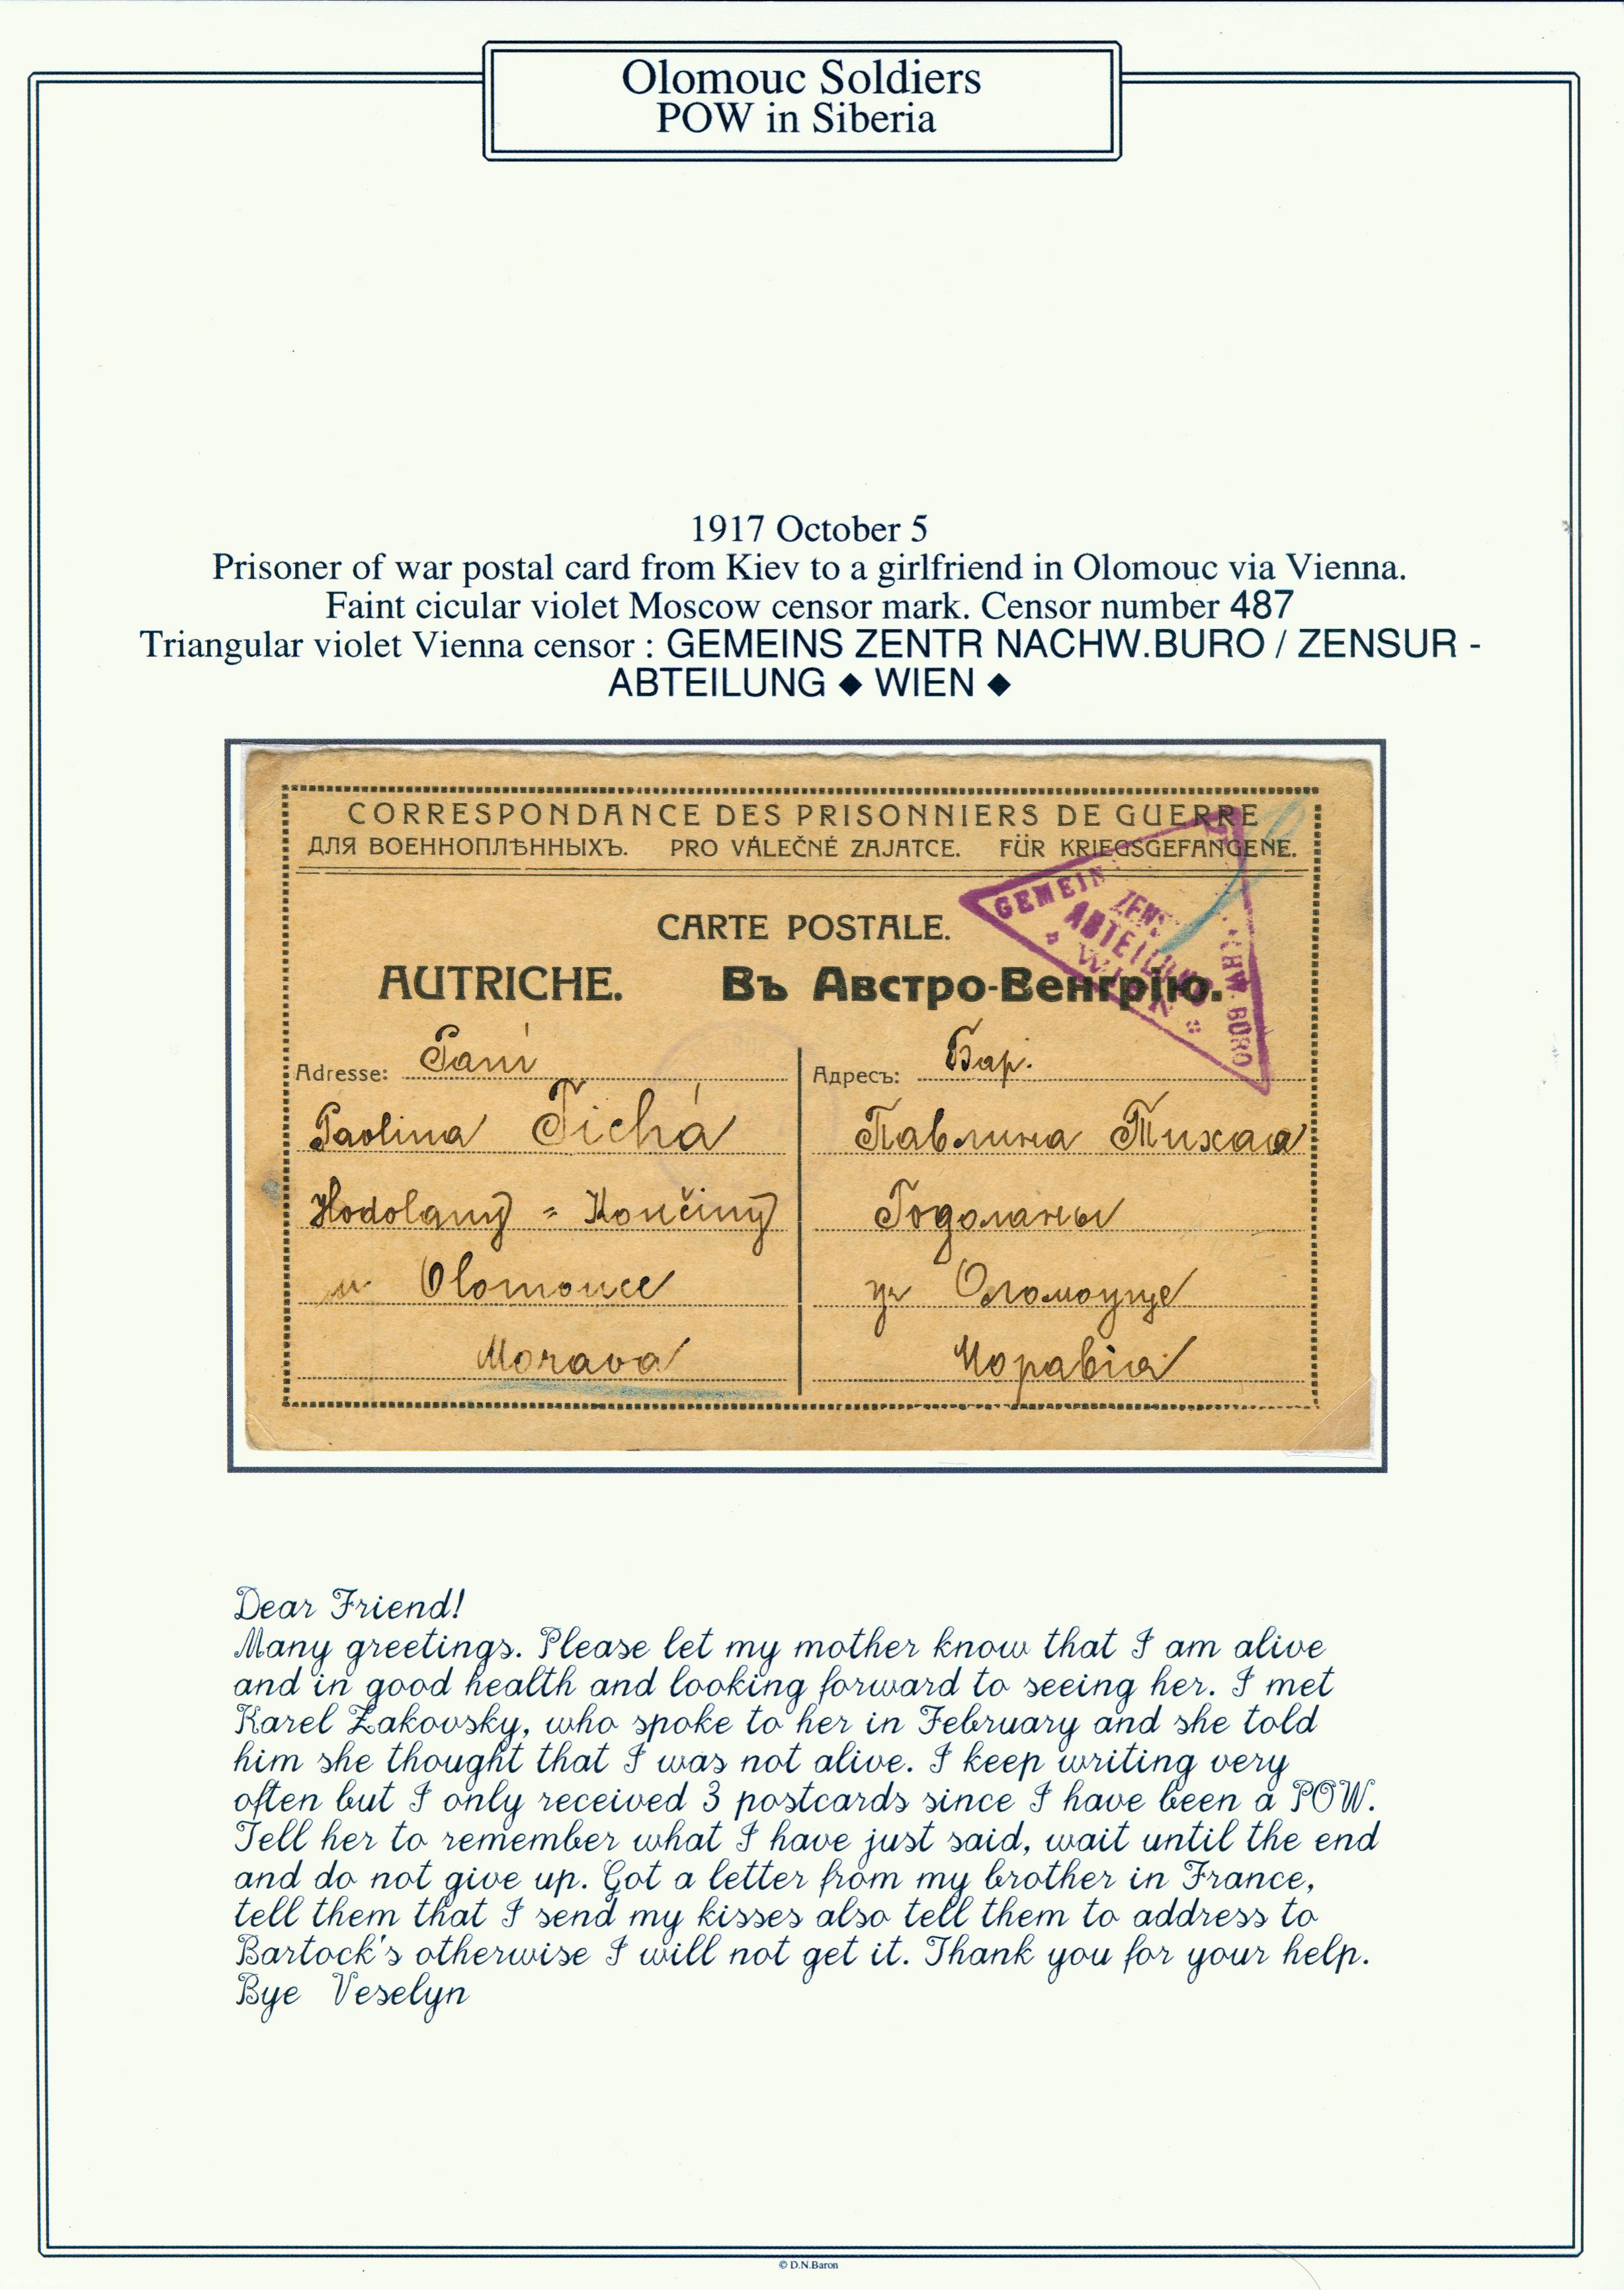 Olomouc Soldiers
POW in Siberia
1917 October 5
Prisoner of war postal card from Kiev to a girlfriend in Olomouc via Vienna.
Faint cicular violet Moscow censor mark. Censor number 487
Triangular violet Vienna censor : GEMEINS ZENTR NACHW.BURO / ZENSUR -
ABTEILUNG ◆ WIEN ◆
CORRESPONDANCE DES PRISONNIERS DE GUERRE
ДЛЯ ВОЕННОПЛѢННЫХЪ. PRO VÁLEČNÉ ZAJATCE. FÜR KRIEGSGEFANGENE.
CARTE POSTALE.
GEMEIN
ABTEILUNG
WIEN
BÜRO
AUTRICHE. Въ Австро-Венгрію.
Adresse: Paní
Paolina Tichá
Hodolany = Končiny
u Olomouce
Morava
Адресъ: Бар.
Павлина Тихаа
Годоланы
у Оломоуце
Моравіа
Dear Friend!
Many greetings. Please let my mother know that I am alive
and in good health and looking forward to seeing her. I met
Karel Zakovsky, who spoke to her in February and she told
him she thought that I was not alive. I keep writing very
often but I only received 3 postcards since I have been a POW.
Tell her to remember what I have just said, wait until the end
and do not give up. Got a letter from my brother in France,
tell them that I send my kisses also tell them to address to
Bartock's otherwise I will not get it. Thank you for your help.
Bye Veselyn
© D.N.Baron